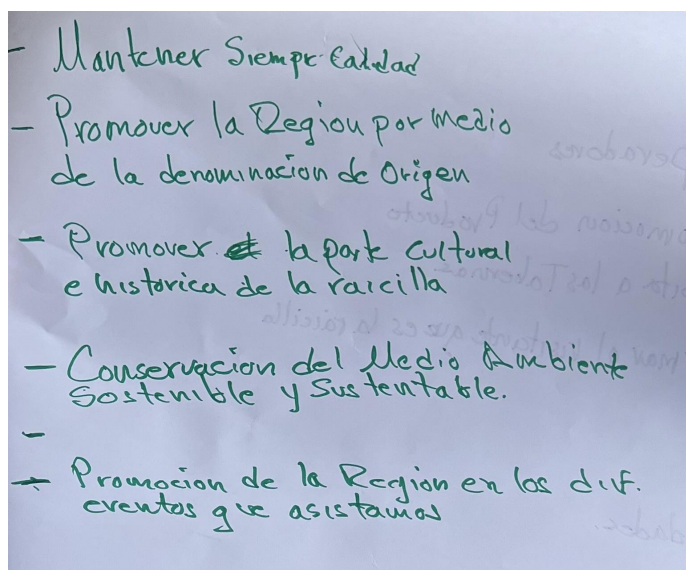 - Mantener Siempre Calidad
- Promover la Region por medio
de la denominacion de Origen
- Promover la parte cultural
e historica de la raicilla
- Conservacion del Medio Ambiente
Sostenible y Sustentable.
-
- Promocion de la Region en los dif.
eventos que asistamos